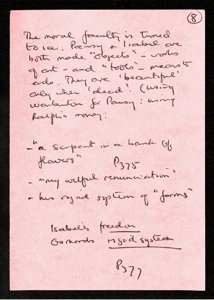 8
The moral faculty is turned
to use. Pansy & Isabel are
both made "objects" – works
of art – and "tools" – means to
ends. They are 'beautiful'
only when 'dead'. (using
Warburton for Pansy: using
Ralph's money:
– "a serpent in a bank of
flowers" P375
– "my wilful renunciation"
– his rigid system of "forms"
Isabel's freedom
Osmonds rigid system
P377